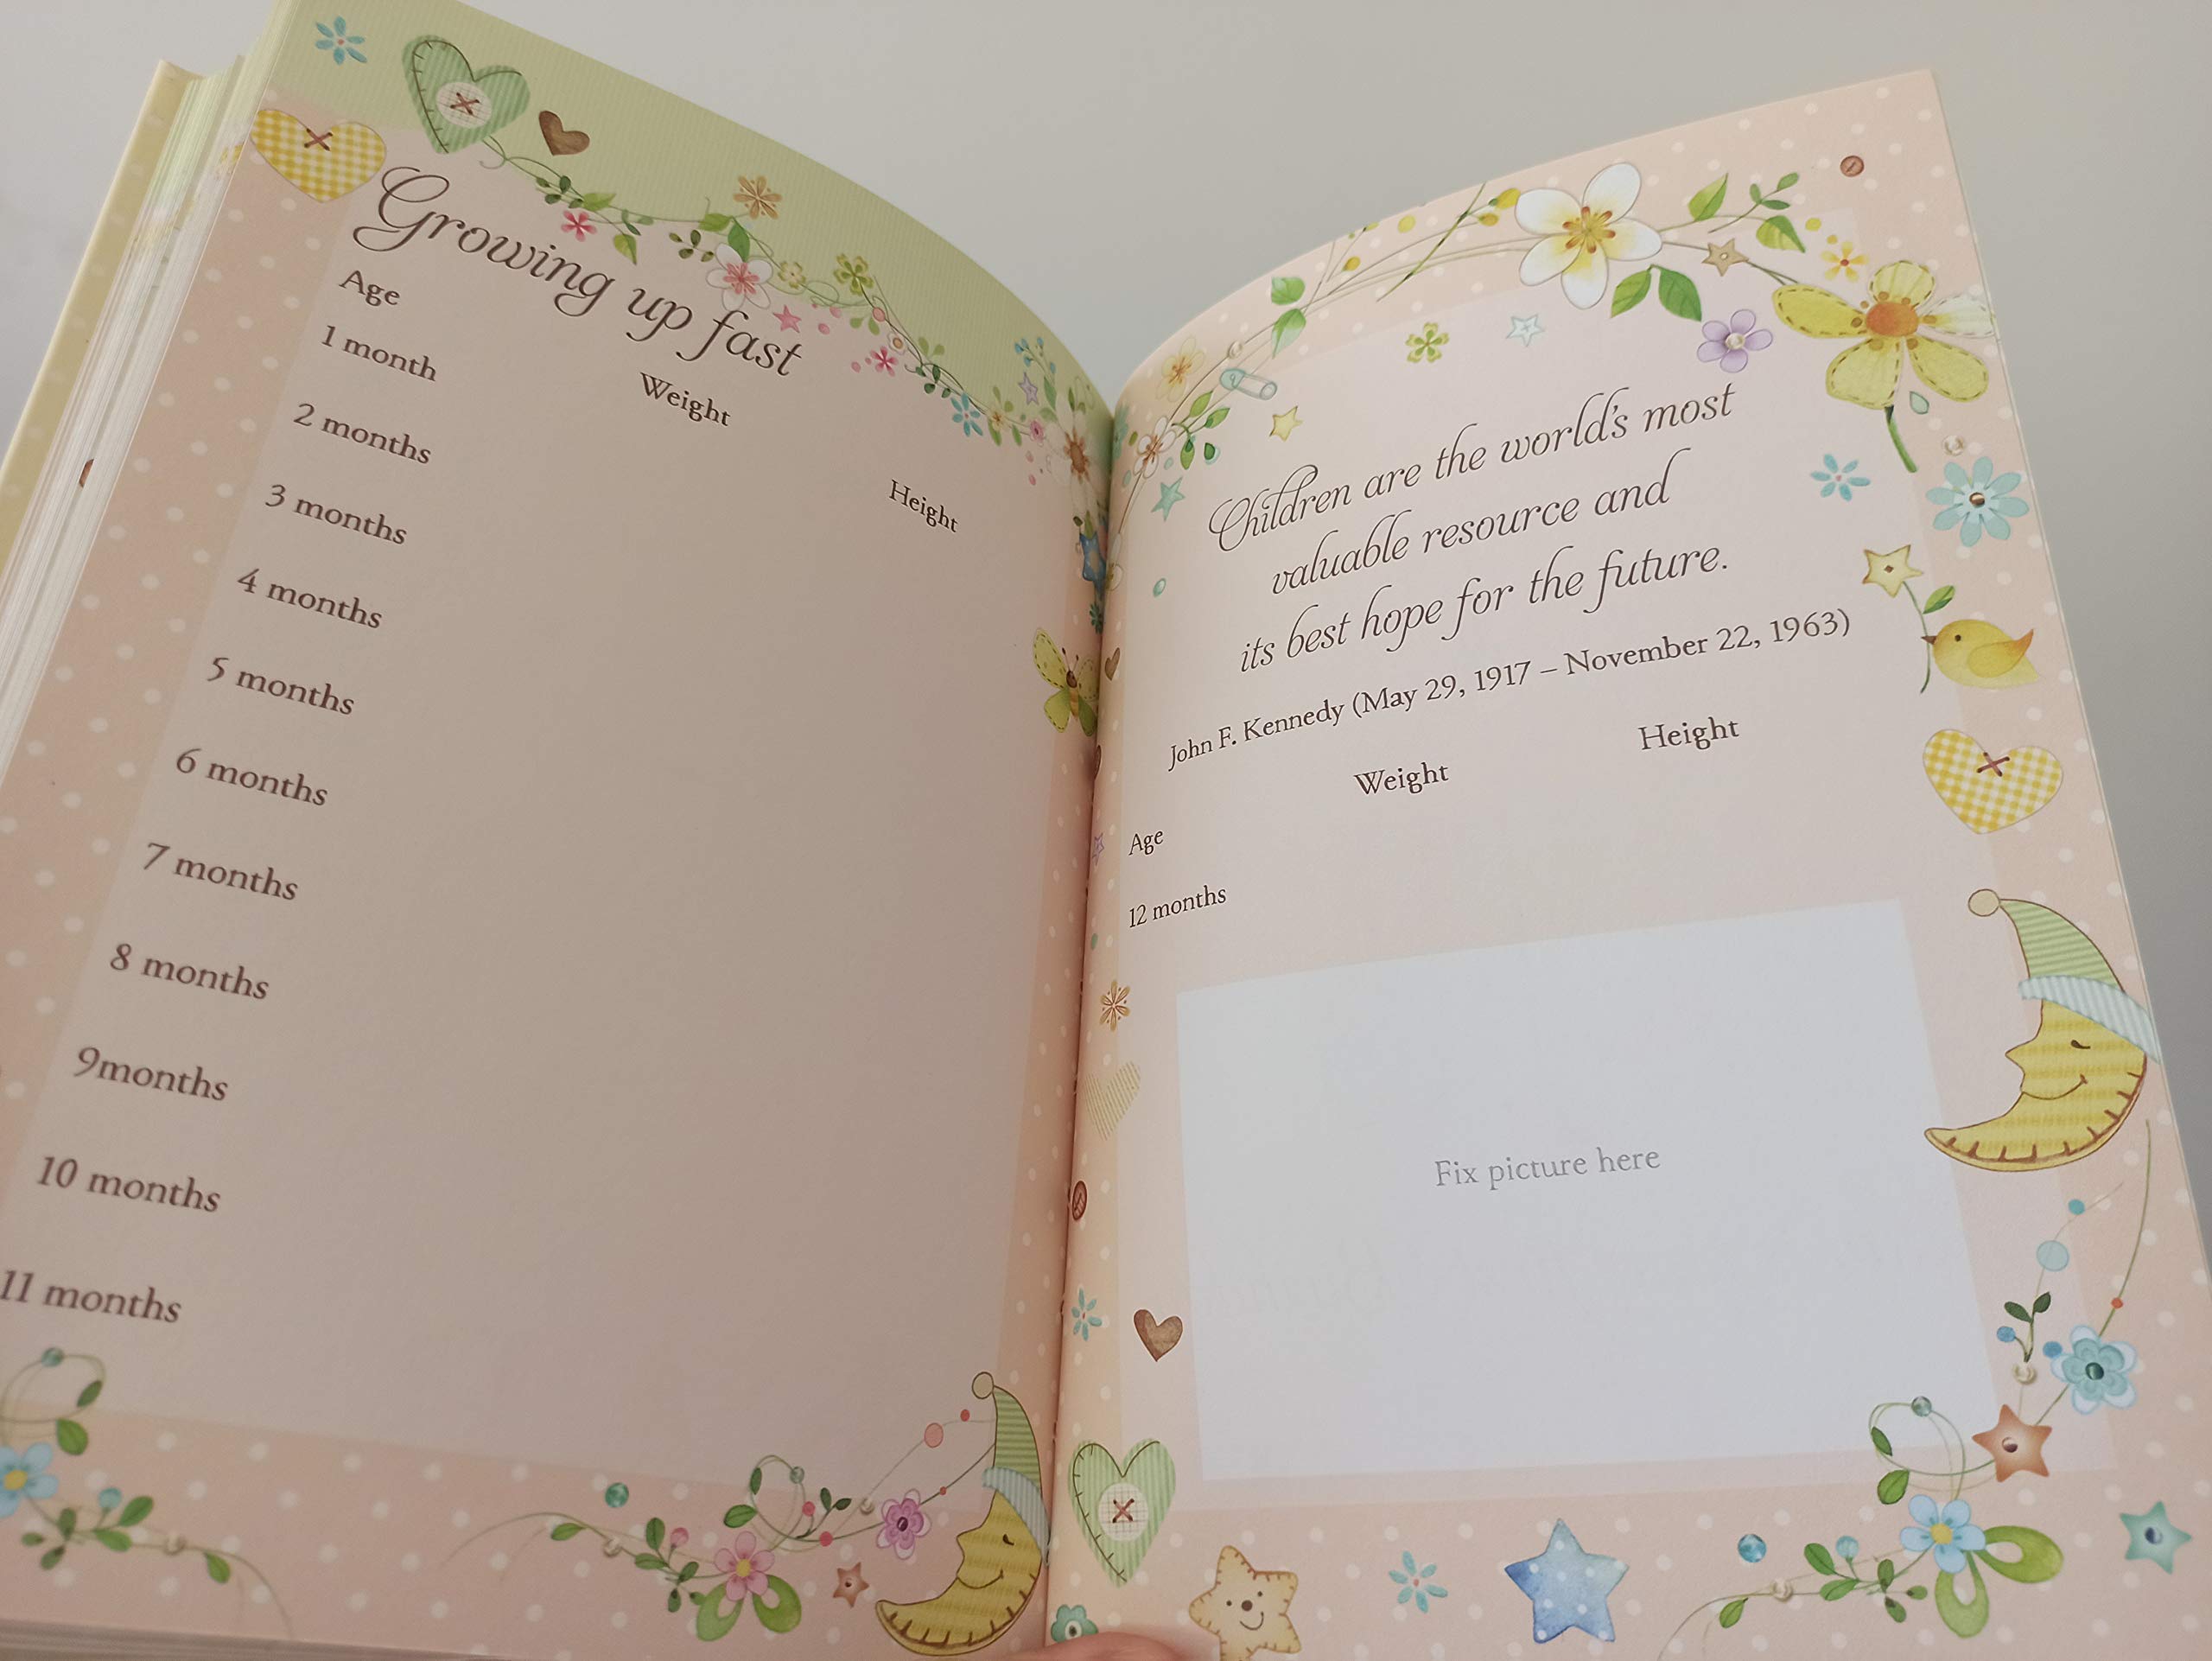 Growing up fast
Age Weight Height
1 month
2 months
3 months
4 months
5 months
6 months
7 months
8 months
9months
10 months
11 months
Children are the world's most
valuable resource and
its best hope for the future.
John F. Kennedy (May 29, 1917 – November 22, 1963)
Age Weight Height
12 months
Fix picture here